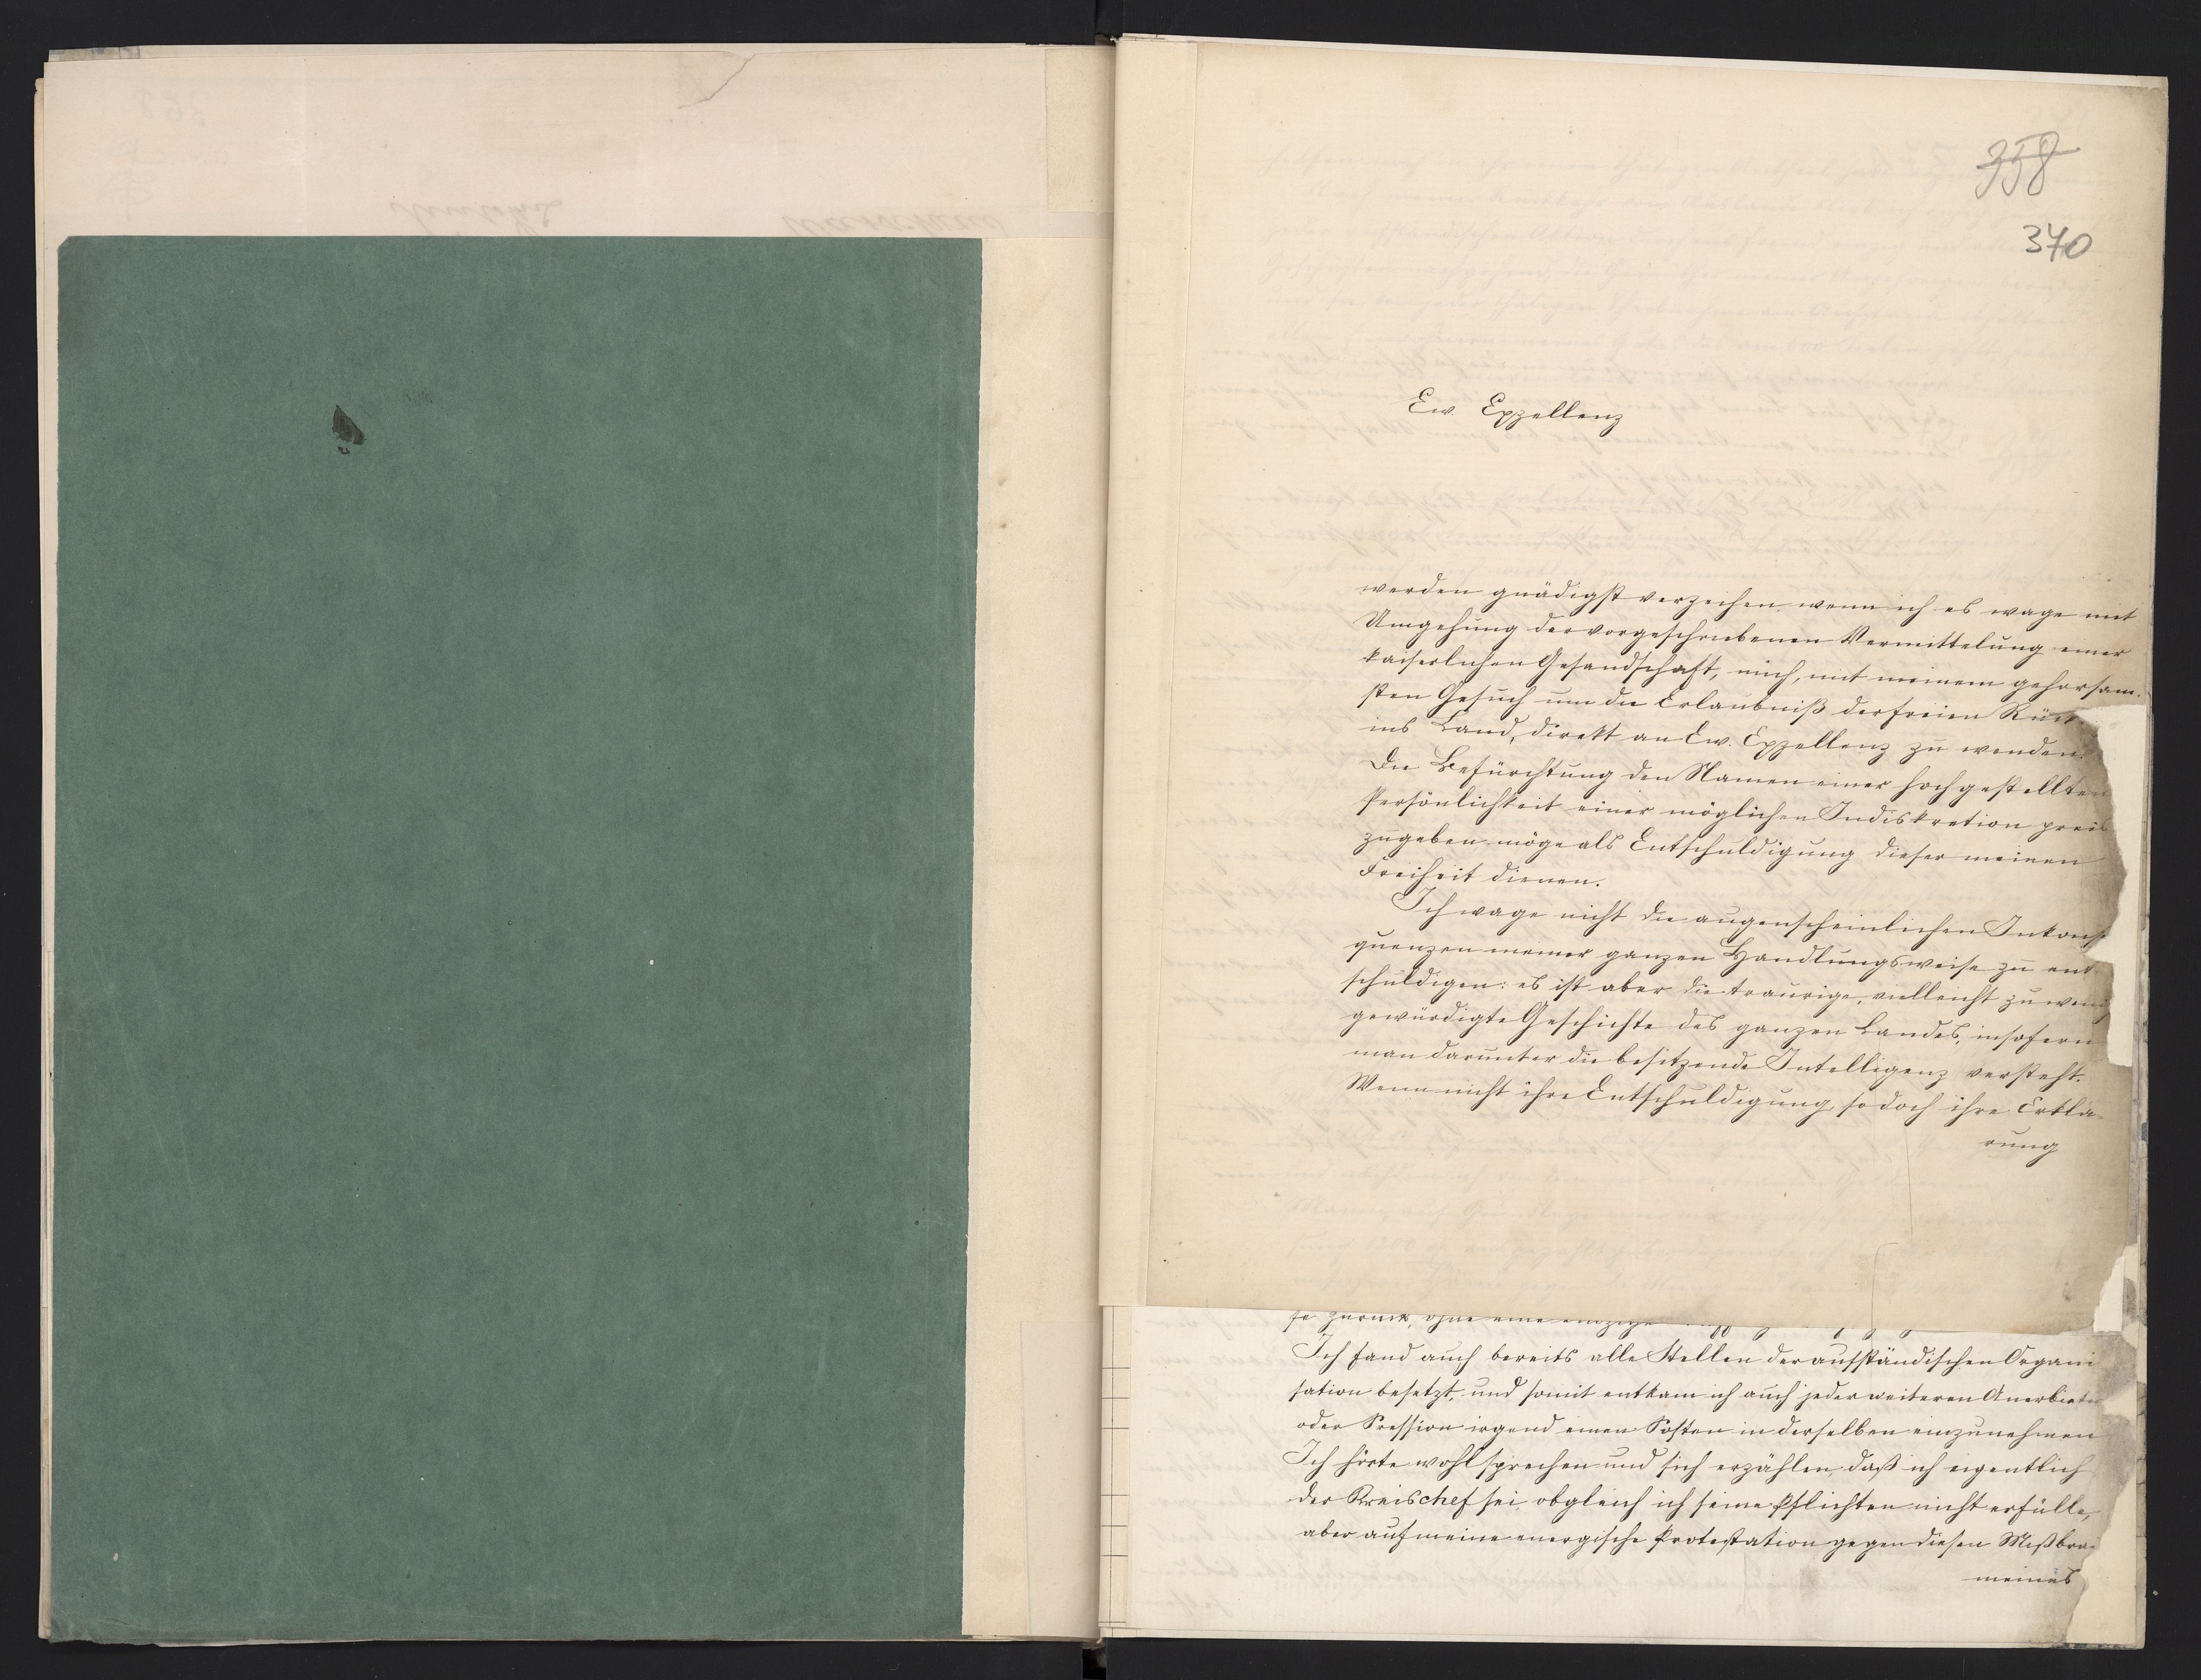 358
370
Ew. Exzellenz
werden gnädigst verzeihen wenn ich es wage mit
Umgehung der vorgeschriebenen Vermittelung einer
kaiserlichen Gesandschaft, mich, mit meinem gehorsam-
sten Gesuch um die Erlaubniß der freien Rück
ins Land, direkt an Ew. Exzellenz zu wenden.
Die Befürchtung den Namen einer hochgestellten
Persönlichkeit einer möglichen Indiskretion preis
zugeben möge als Entschuldigung dieser meinen
Freiheit dienen.
Ich wage nicht die augenscheinlichen Inkonse
quenzen meiner ganzen Handlungsweise zu ent
schuldigen: es ist aber die traurige, vielleicht zu wenig
gewürdigte Geschichte des ganzen Landes, insofern
man darunter die besitzende Intelligenz versteht.
Wenn nicht ihre Entschuldigung, so doch ihre Erklä-
rung
so zurück, ohne eine einzige
Ich fand auch bereits alle Stellen der aufständischen Organi
sation besetzt, und somit entkam ich auch jeder weiteren Anerbieten
oder Pression irgend einen Posten in derselben einzunehmen
Ich hörte wohl sprechen und sich erzählen, daß ich eigentlich
der Kreischef sei, obgleich ich seine Pflichten nicht erfülle,
aber auf meine energische Protestation gegen diesen Mißbra-
meines